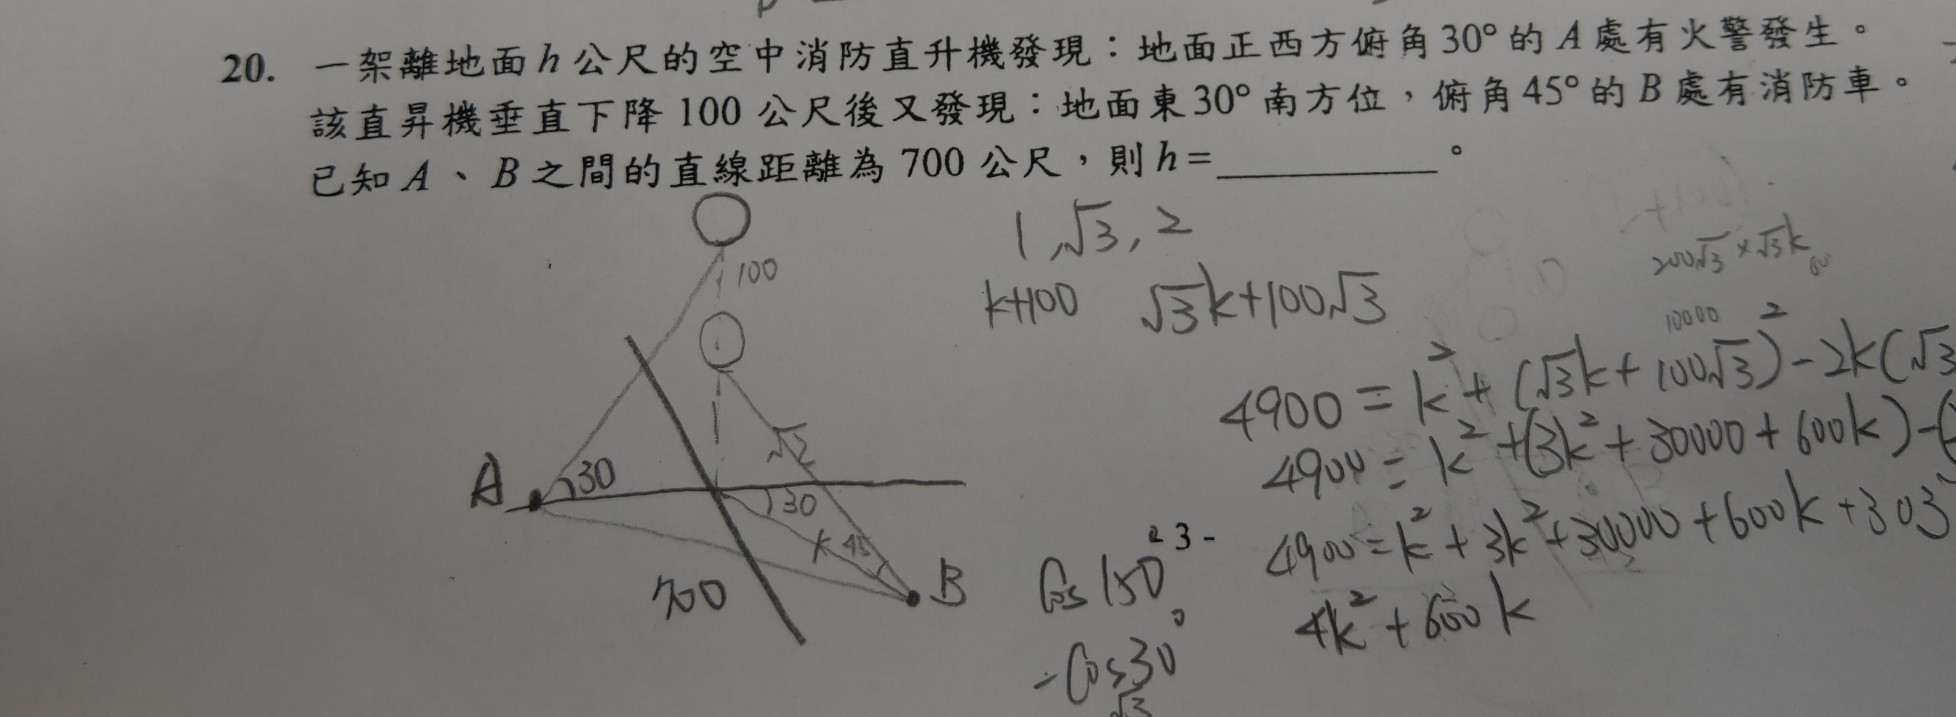 20. 一架離地面h公尺的空中消防直升機發現：地面正西方俯角30°的A處有火警發生。
該直昇機垂直下降100公尺後又發現：地面東30°南方位，俯角45°的B處有消防車。
已知A、B之間的直線距離為700公尺，則h=__________。
100
A
30
√2
30
k
45
B
700
1,√3,2
k+100 √3k+100√3
200√3×√3k
10000
4900=k²+(√3k+100√3)²-2k(√3
4900=k²+(3k²+30000+600k)-(
4900=k²+3k²+30000+600k+303
4k²+600k
- 3 -
Cos150°
-Cos30°
√3